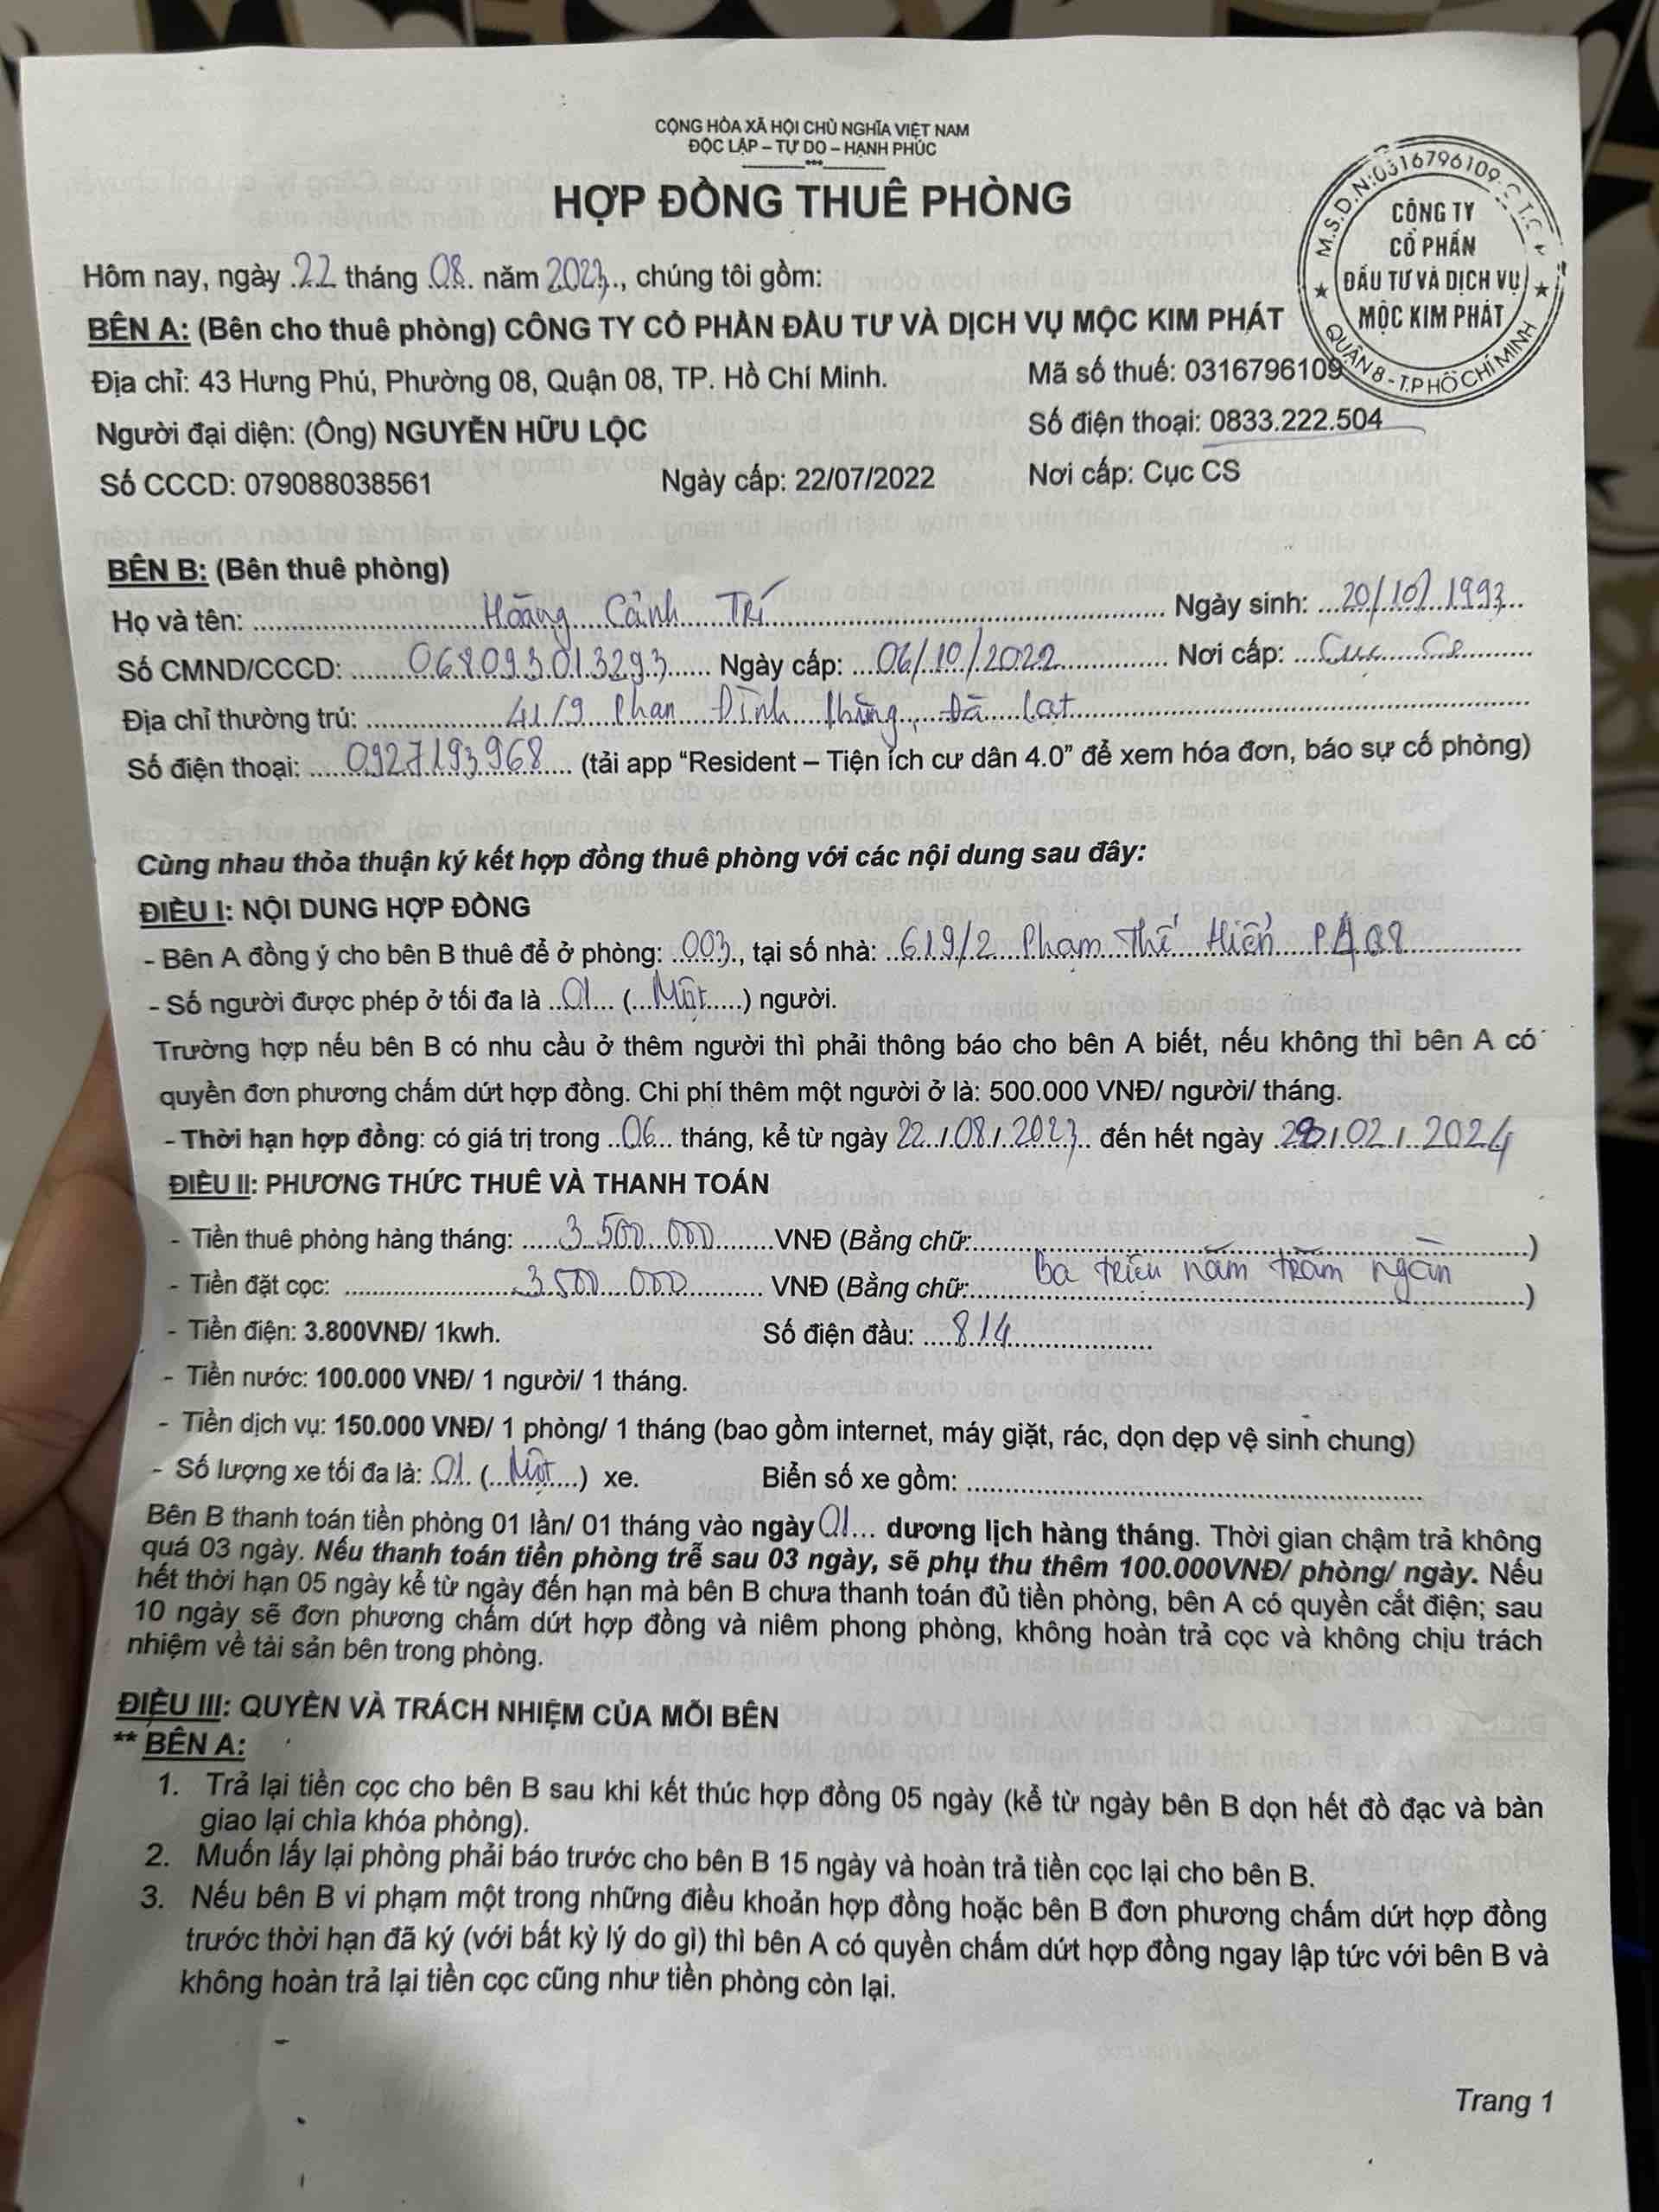 CỘNG HÒA XÃ HỘI CHỦ NGHĨA VIỆT NAM
ĐỘC LẬP – TỰ DO – HẠNH PHÚC
HỢP ĐỒNG THUÊ PHÒNG
M.S.D.N:0316796109-C.T.C.P
CÔNG TY
CỔ PHẦN
ĐẦU TƯ VÀ DỊCH VỤ
MỘC KIM PHÁT
QUẬN 8 - T.P HỒ CHÍ MINH
Hôm nay, ngày 22 tháng 08 năm 2023, chúng tôi gồm:
BÊN A: (Bên cho thuê phòng) CÔNG TY CỔ PHẦN ĐẦU TƯ VÀ DỊCH VỤ MỘC KIM PHÁT
Địa chỉ: 43 Hưng Phú, Phường 08, Quận 08, TP. Hồ Chí Minh. Mã số thuế: 0316796109
Người đại diện: (Ông) NGUYỄN HỮU LỘC Số điện thoại: 0833.222.504
Số CCCD: 079088038561 Ngày cấp: 22/07/2022 Nơi cấp: Cục CS
BÊN B: (Bên thuê phòng)
Họ và tên: Hoàng Cảnh Trí Ngày sinh: 20/10/1993
Số CMND/CCCD: 068093013293 Ngày cấp: 06/10/2022 Nơi cấp: Cục CS
Địa chỉ thường trú: 41/9 Phan Đình Phùng, Đà Lạt
Số điện thoại: 0927193968 (tải app “Resident – Tiện ích cư dân 4.0” để xem hóa đơn, báo sự cố phòng)
Cùng nhau thỏa thuận ký kết hợp đồng thuê phòng với các nội dung sau đây:
ĐIỀU I: NỘI DUNG HỢP ĐỒNG
- Bên A đồng ý cho bên B thuê để ở phòng: 003, tại số nhà: 619/2 Phạm Thế Hiển P4 Q8
- Số người được phép ở tối đa là 01 (Một) người.
Trường hợp nếu bên B có nhu cầu ở thêm người thì phải thông báo cho bên A biết, nếu không thì bên A có
quyền đơn phương chấm dứt hợp đồng. Chi phí thêm một người ở là: 500.000 VNĐ/ người/ tháng.
- Thời hạn hợp đồng: có giá trị trong 06 tháng, kể từ ngày 22/08/2023 đến hết ngày /02/2024
ĐIỀU II: PHƯƠNG THỨC THUÊ VÀ THANH TOÁN
- Tiền thuê phòng hàng tháng: 3 500 000 VNĐ (Bằng chữ: )
- Tiền đặt cọc: 3 500 000 VNĐ (Bằng chữ: Ba triệu năm trăm ngàn )
- Tiền điện: 3.800VNĐ/ 1kwh. Số điện đầu: 814
- Tiền nước: 100.000 VNĐ/ 1 người/ 1 tháng.
- Tiền dịch vụ: 150.000 VNĐ/ 1 phòng/ 1 tháng (bao gồm internet, máy giặt, rác, dọn dẹp vệ sinh chung)
- Số lượng xe tối đa là: 01 (Một) xe. Biển số xe gồm:
Bên B thanh toán tiền phòng 01 lần/ 01 tháng vào ngày 01... dương lịch hàng tháng. Thời gian chậm trả không
quá 03 ngày. Nếu thanh toán tiền phòng trễ sau 03 ngày, sẽ phụ thu thêm 100.000VNĐ/ phòng/ ngày. Nếu
hết thời hạn 05 ngày kể từ ngày đến hạn mà bên B chưa thanh toán đủ tiền phòng, bên A có quyền cắt điện; sau
10 ngày sẽ đơn phương chấm dứt hợp đồng và niêm phong phòng, không hoàn trả cọc và không chịu trách
nhiệm về tài sản bên trong phòng.
ĐIỀU III: QUYỀN VÀ TRÁCH NHIỆM CỦA MỖI BÊN
** BÊN A:
1. Trả lại tiền cọc cho bên B sau khi kết thúc hợp đồng 05 ngày (kể từ ngày bên B dọn hết đồ đạc và bàn
giao lại chìa khóa phòng).
2. Muốn lấy lại phòng phải báo trước cho bên B 15 ngày và hoàn trả tiền cọc lại cho bên B.
3. Nếu bên B vi phạm một trong những điều khoản hợp đồng hoặc bên B đơn phương chấm dứt hợp đồng
trước thời hạn đã ký (với bất kỳ lý do gì) thì bên A có quyền chấm dứt hợp đồng ngay lập tức với bên B và
không hoàn trả lại tiền cọc cũng như tiền phòng còn lại.
Trang 1